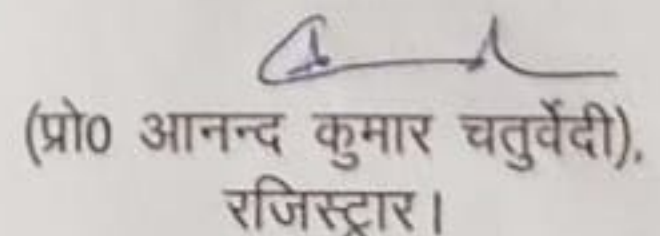 (प्रो0 आनन्द कुमार चतुर्वेदी),
रजिस्ट्रार।